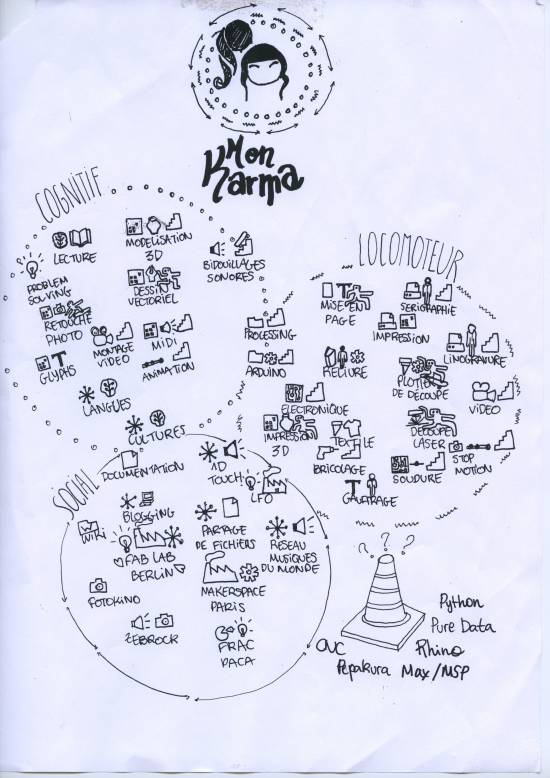 Mon
Karma
COGNITIF
LECTURE
MODELISATION
3D
PROBLEM
SOLVING
DESSIN
VECTORIEL
RETOUCHE
PHOTO
MONTAGE
VIDEO
MIDI
GLYPHS
ANIMATION
LANGUES
CULTURES
BIDOUILLAGES
SONORES
PROCESSING
ARDUINO
LOCOMOTEUR
MISE EN
PAGE
SERIGRAPHIE
IMPRESSION
LINOGRAVURE
RELIURE
PLOTTER
DE DÉCOUPE
VIDEO
ELECTRONIQUE
IMPRESSION
3D
TEXTILE
DECOUPE
LASER
BRICOLAGE
SOUDURE
STOP
MOTION
GAUFRAGE
SOCIAL
DOCUMENTATION
1D
TOUCH!
LFO
BLOGGING
WIKI
PARTAGE
DE FICHIERS
RESEAU
MUSIQUES
DU MONDE
FAB LAB
BERLIN
FOTOKINO
MAKERSPACE
PARIS
ZEBROCK
FRAC
PACA
? ? ?
Python
Pure Data
CNC
Rhino
Pepakura Max/MSP